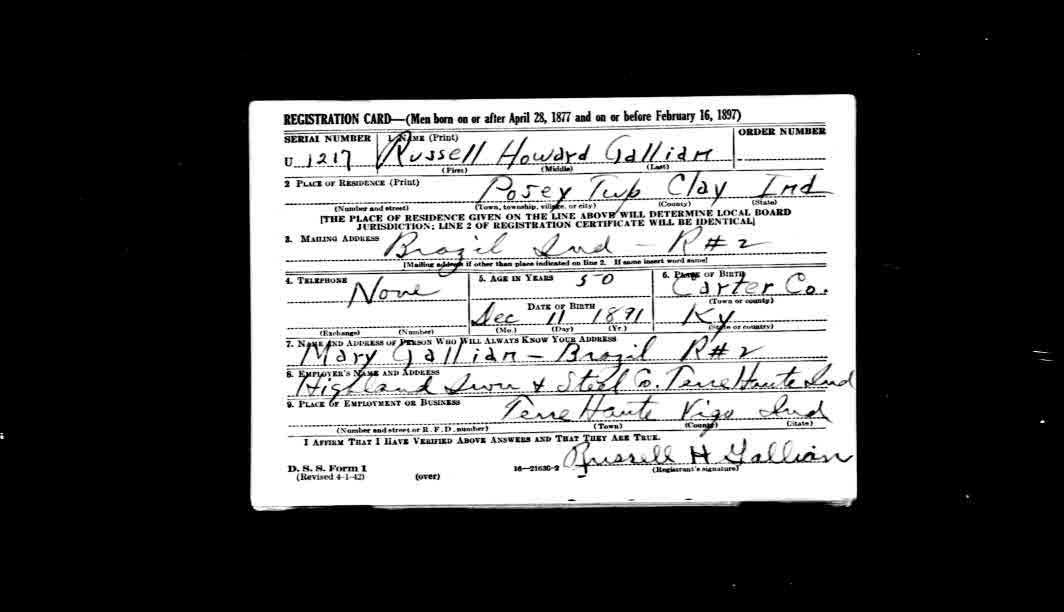 REGISTRATION CARD—(Men born on or after April 28, 1877 and on or before February 16, 1897)
SERIAL NUMBER 1. NAME (Print) ORDER NUMBER
U 1217 Russell Howard Gallian
(First) (Middle) (Last)
2 PLACE OF RESIDENCE (Print)
Posey Twp Clay Ind
(Number and street) (Town, township, village, or city) (County) (State)
[THE PLACE OF RESIDENCE GIVEN ON THE LINE ABOVE WILL DETERMINE LOCAL BOARD
JURISDICTION; LINE 2 OF REGISTRATION CERTIFICATE WILL BE IDENTICAL]
3. MAILING ADDRESS
Brazil Ind – R#2
[Mailing address if other than place indicated on line 2. If same insert word same]
4. TELEPHONE 5. AGE IN YEARS 50 6. PLACE OF BIRTH
None Carter Co.
(Town or county)
DATE OF BIRTH
Dec 11 1891 Ky
(Exchange) (Number) (Mo.) (Day) (Yr.) (State or country)
7. NAME AND ADDRESS OF PERSON WHO WILL ALWAYS KNOW YOUR ADDRESS
Mary Gallian – Brazil R#2
8. EMPLOYER'S NAME AND ADDRESS
Highland Iron & Steel Co. Terre Haute Ind
9. PLACE OF EMPLOYMENT OR BUSINESS
Terre Haute Vigo Ind
(Number and street or R. F. D. number) (Town) (County) (State)
I AFFIRM THAT I HAVE VERIFIED ABOVE ANSWERS AND THAT THEY ARE TRUE.
Russell H Gallian
D. S. S. Form 1 16—21630-2 (Registrant's signature)
(Revised 4-1-42) (over)